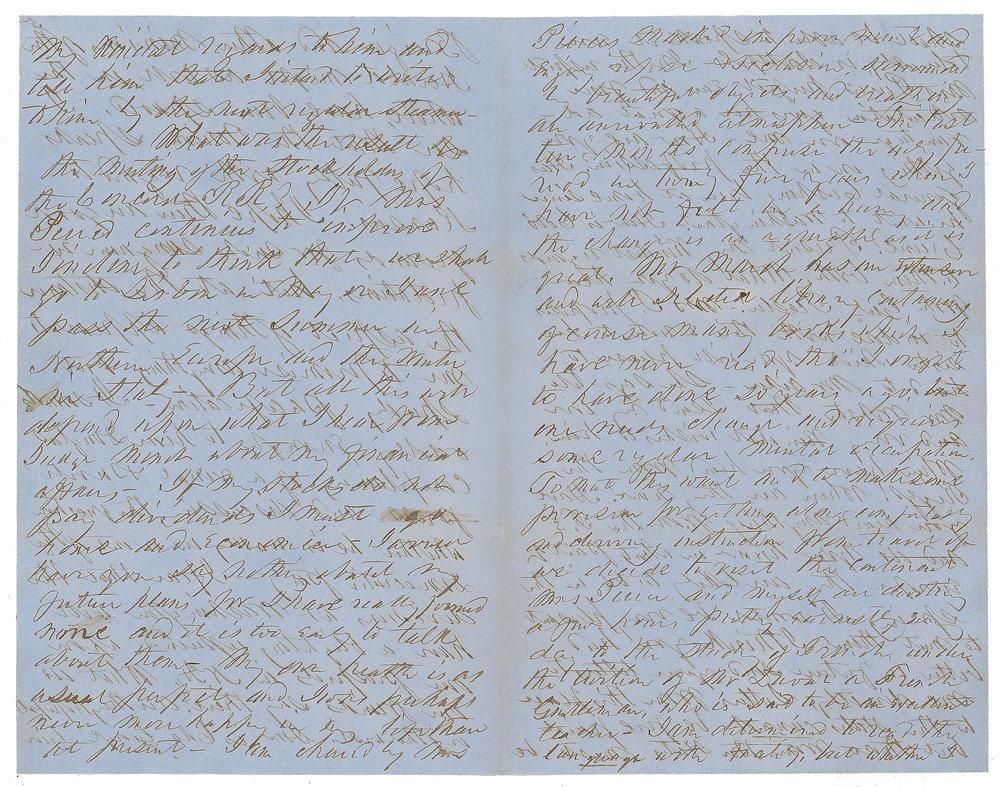 my kindest regards to him and
tell him that I intend to write
to him by the next regular steamer –
What was the result of
the meeting of the Stockholders of
the Concord R.R. If Mrs
Pierce continues to improve
I incline to think that we shall
go to Lisbon in May or June
pass the next Summer in
Northern Europe and the winter
in Italy – But all this will
depend upon what I hear from
Judge Minot about my financial
affairs – If my stocks do not
pay dividends I must go
home and Economise –
have you say nothing about my
future plans for I have really formed
none and it is too early to talk
about them – My own health is as
usual perfect and I was perhaps
never more happy in my life than
at present – I am cheered by Mrs
Pierce's marked improvement and
enjoy repose & seclusion, surrounded
by beautiful objects and breathing
an unrivalled atmosphere – The last
two months comprise the only pe-
riod in twenty five years when I
have not felt in a hurry and
the change is as agreeable as it is
great. Mr March has an extensive
and well selected library containing
of course many books which I
have never read, tho' I ought
to have done so years ago but
one needs change and requires
some regular mental occupation.
So both want and to make some
provision for getting along comfortably
and deriving instruction from travel if
we decide to visit the continent
Mrs Pierce and myself are devoting
a few hours pretty earnestly every
day to the study of French under
the tuition of Mr a French
Gentleman, who is said to be an excellent
teacher – I am determined to read the
language with facility, but whether I